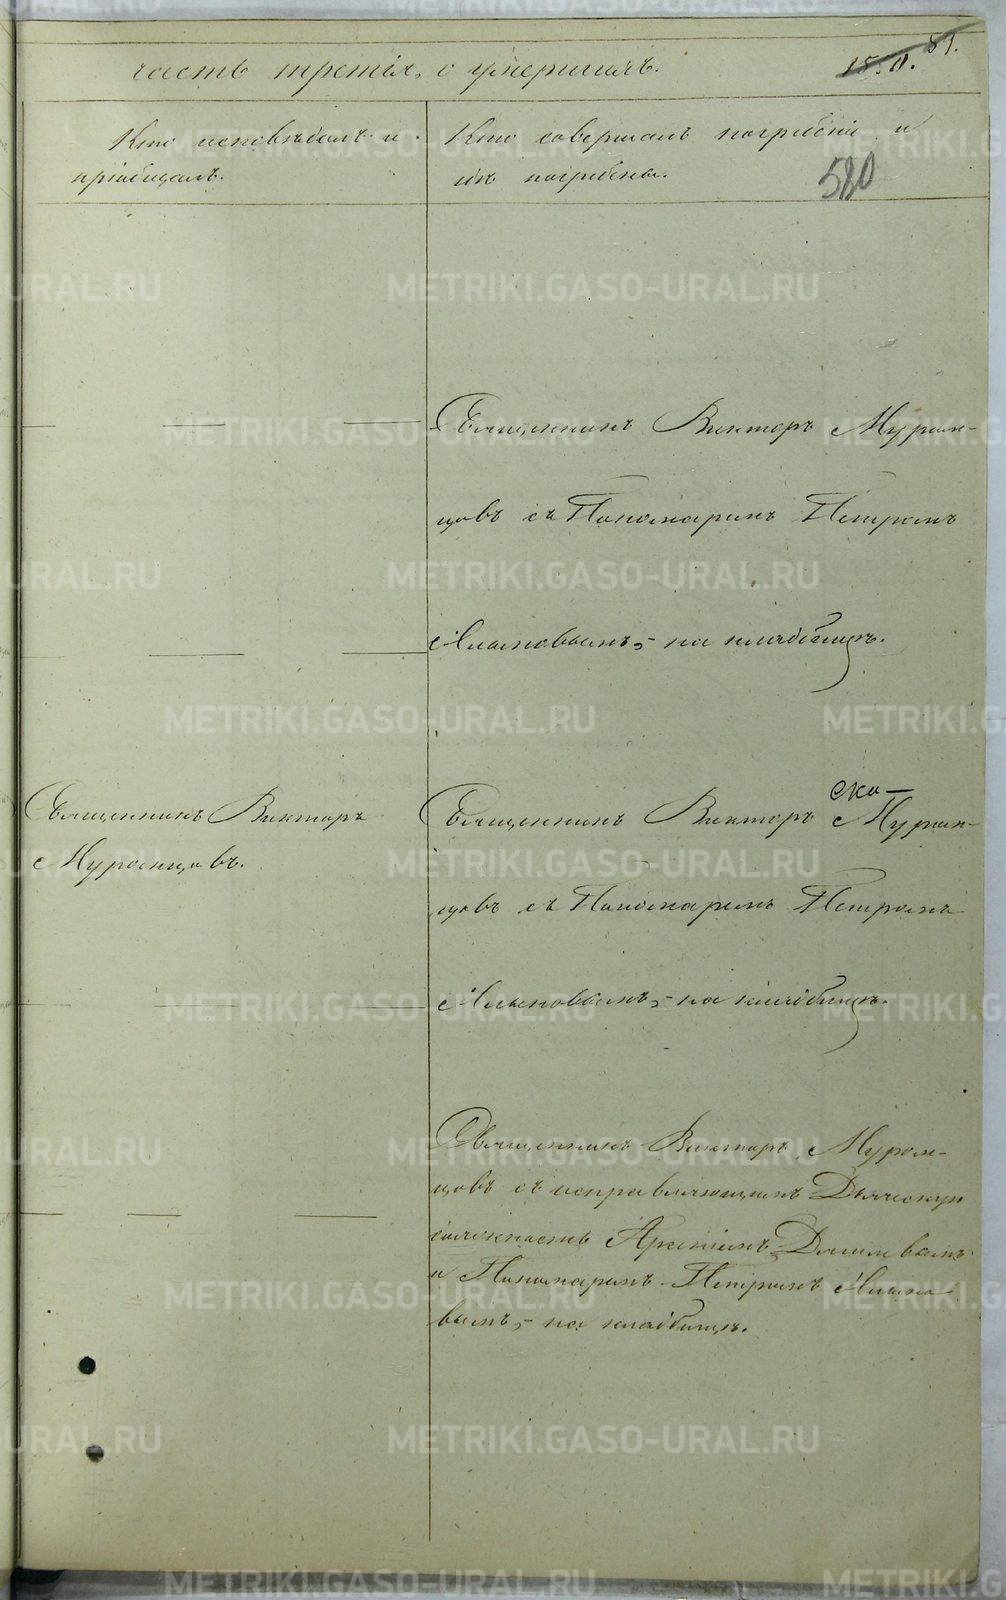 часть третія, о умершихъ.
81.
Кто исповѣдалъ и
пріобщалъ.
Кто совершалъ погребеніе и
гдѣ погребены.
580
Священникъ Викторъ Муром-
цовъ съ Пономаремъ Петромъ
на кладбищѣ.
Священникъ Викторъ
Муромцовъ.
Ско-
Священникъ Викторъ Муром-
цовъ съ Пономаремъ Петромъ
на кладбищѣ.
Священникъ Викторъ Муром-
цовъ съ исправляющимъ Дьяческую
должность Арсеніемъ
и Пономаремъ Петромъ
вымъ, на кладбищѣ.
METRIKI.GASO-URAL.RU